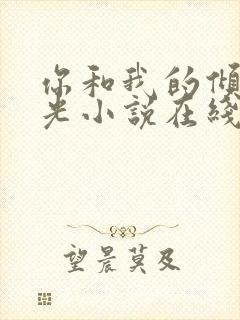 你和我的倾
光小说在线
望晨莫及